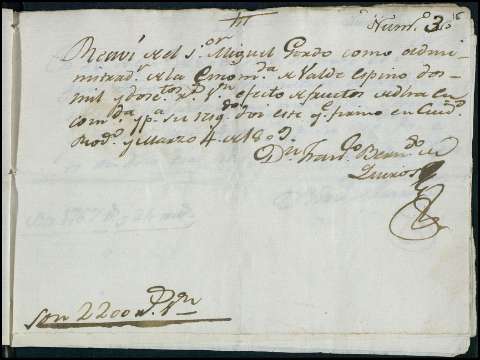 Num.º 3.º
Reciví del S.or Miguel Gordo como admi-
nistrad.r de la Encom.da de Valde Espino dos-
mil y dosc.tos r.s V.n efecto de frutos de dha En
com.da y p.a su resg.do doi este q.e firmo en Ciud.d
Rod.o y Marzo 4 de 1809.
D.n Fran.co Bern.do de
Quiros
Son 2200 r.s V.n